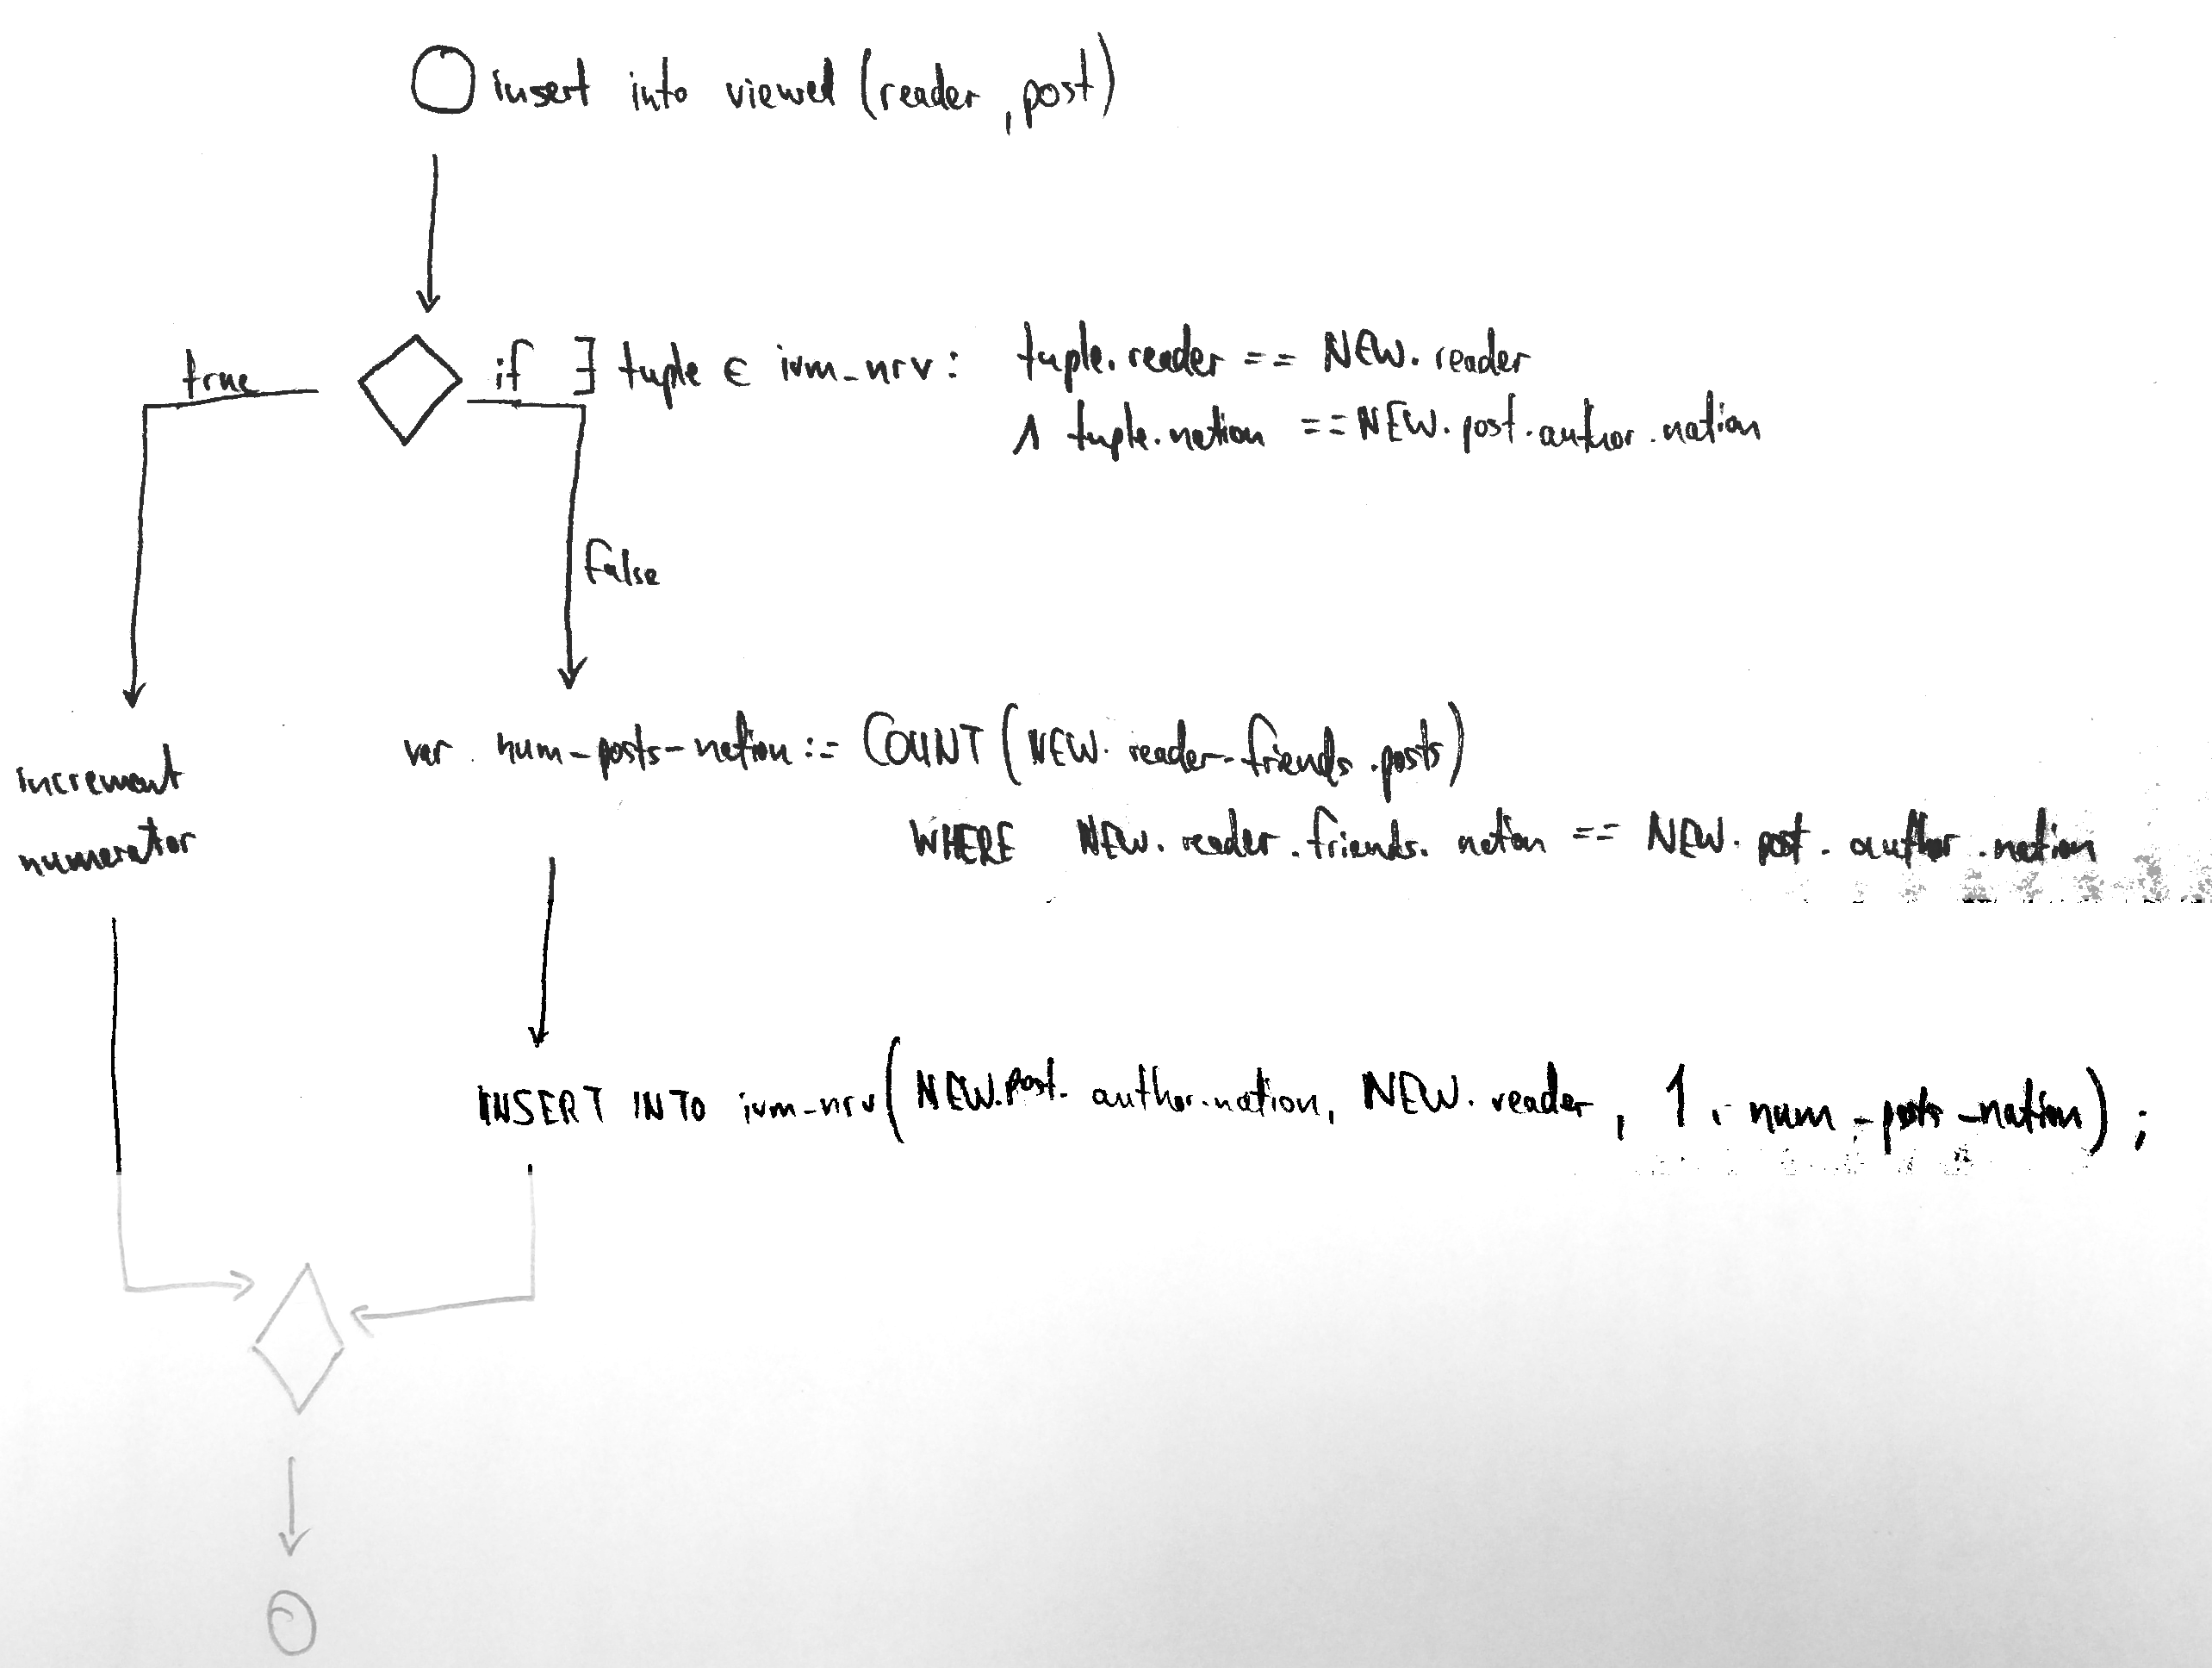 insert into viewed (reader, post)
true
if ∃ tuple ∈ ivm_nrv: tuple.reader == NEW.reader
∧ tuple.nation == NEW.post.author.nation
false
increment
numerator
var num_posts_nation := COUNT (NEW.reader.friends.posts)
WHERE NEW.reader.friends.nation == NEW.post.author.nation
INSERT INTO ivm_nrv (NEW.post.author.nation, NEW.reader, 1, num_posts_nation);